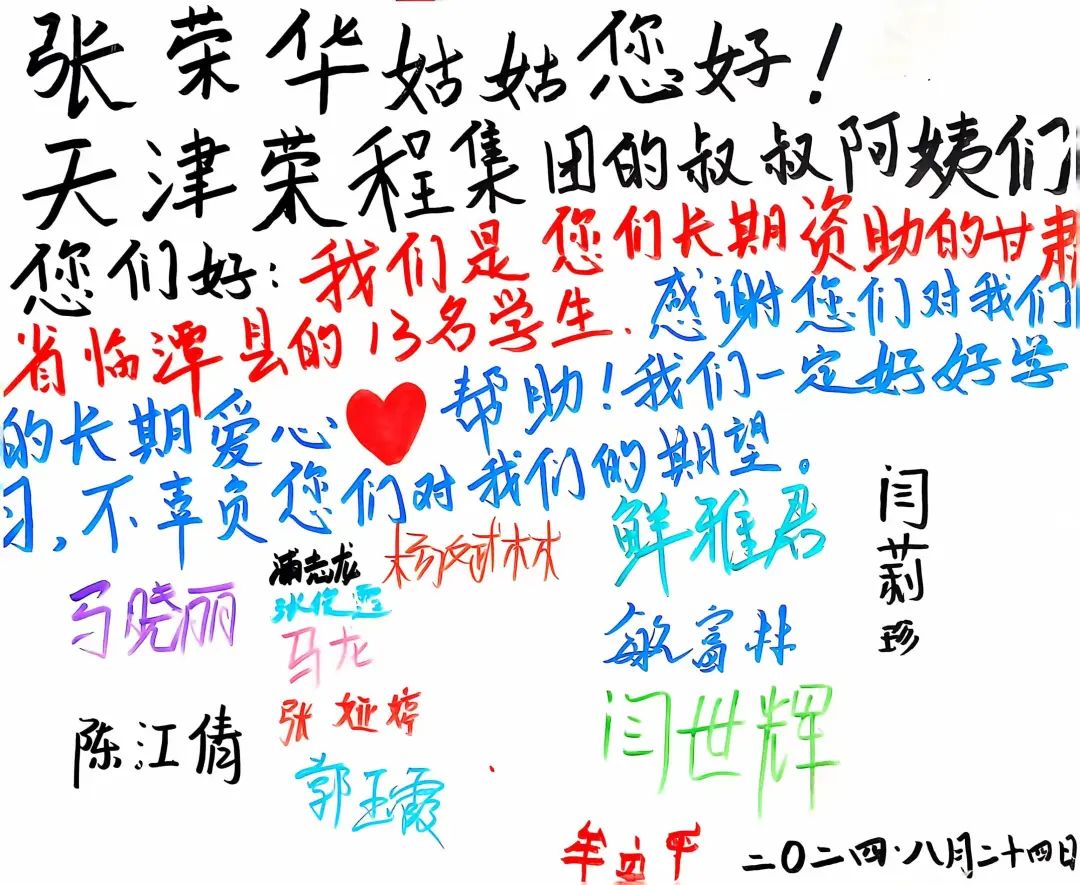 张荣华姑姑您好！
天津荣程集团的叔叔阿姨们
您们好：我们是您们长期资助的甘肃
省临潭县的13名学生.感谢您们对我们
的长期爱心帮助！我们一定好好学
习,不辜负您们对我们的期望。
闫莉珍
鲜雅君
马晓丽
张俊霞
马龙
敏富林
陈江倩
张娅婷
闫世辉
郭玉霞
二〇二四.八月二十四日